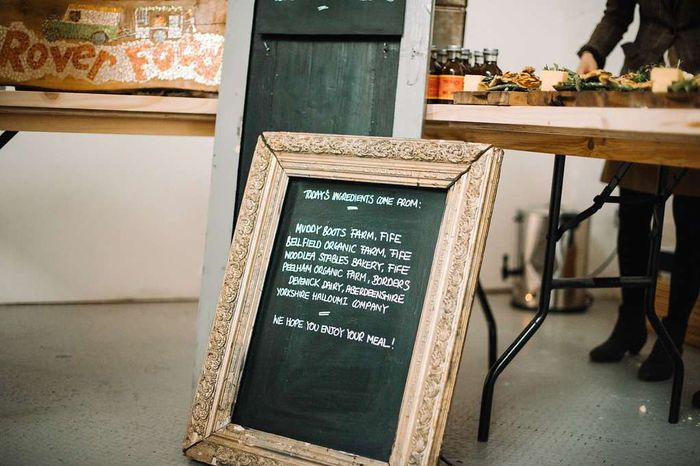 Rover Food
TODAY'S INGREDIENTS COME FROM:
MUDDY BOOTS FARM, FIFE
BELLFIELD ORGANIC FARM, FIFE
WOODLEA STABLES BAKERY, FIFE
PEELHAM ORGANIC FARM, BORDERS
DEVENICK DAIRY, ABERDEENSHIRE
YORKSHIRE HALLOUMI COMPANY
WE HOPE YOU ENJOY YOUR MEAL!